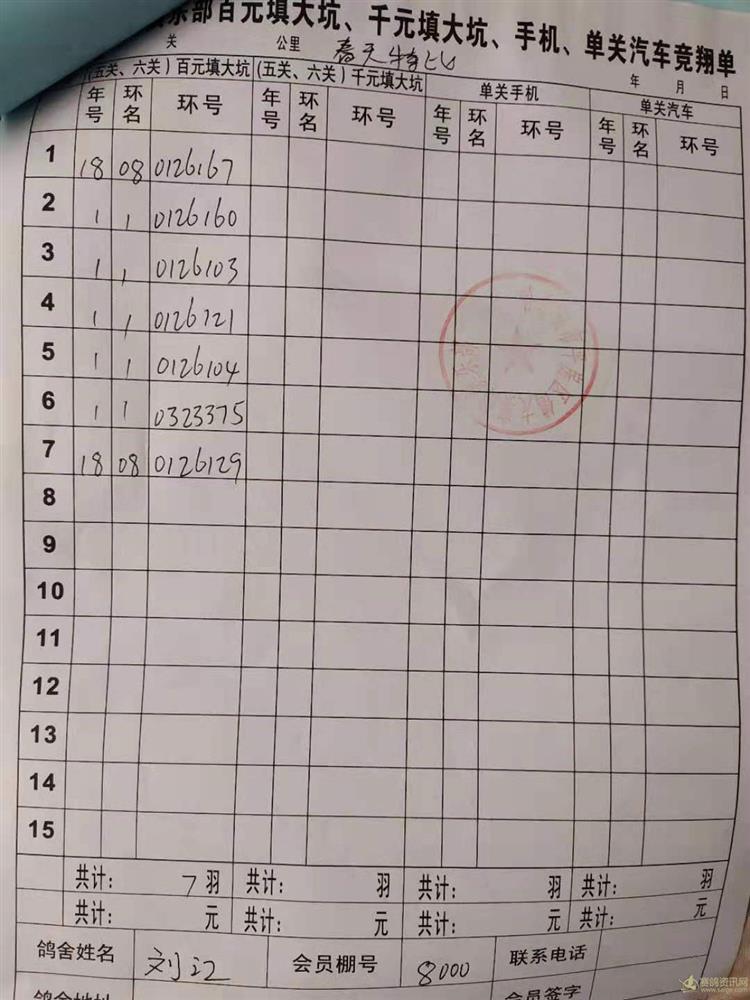 东部百元填大坑、千元填大坑、手机、单关汽车竞翔单
关 公里 春天特比 年 月 日
(五关、六关)百元填大坑 (五关、六关)千元填大坑 单关手机 单关汽车
年号 环名 环号 年号 环名 环号 年号 环名 环号 年号 环名 环号
1 18 08 0126167
2 0126160
3 0126103
4 0126121
5 0126104
6 0323375
7 18 08 0126129
8
9
10
11
12
13
14
15
共计: 7 羽 共计: 羽 共计: 羽 共计: 羽
共计: 元 共计: 元 共计: 元 共计: 元
鸽舍姓名 刘江 会员棚号 8000 联系电话
鸽舍地址 会员签字
赛鸽资讯网